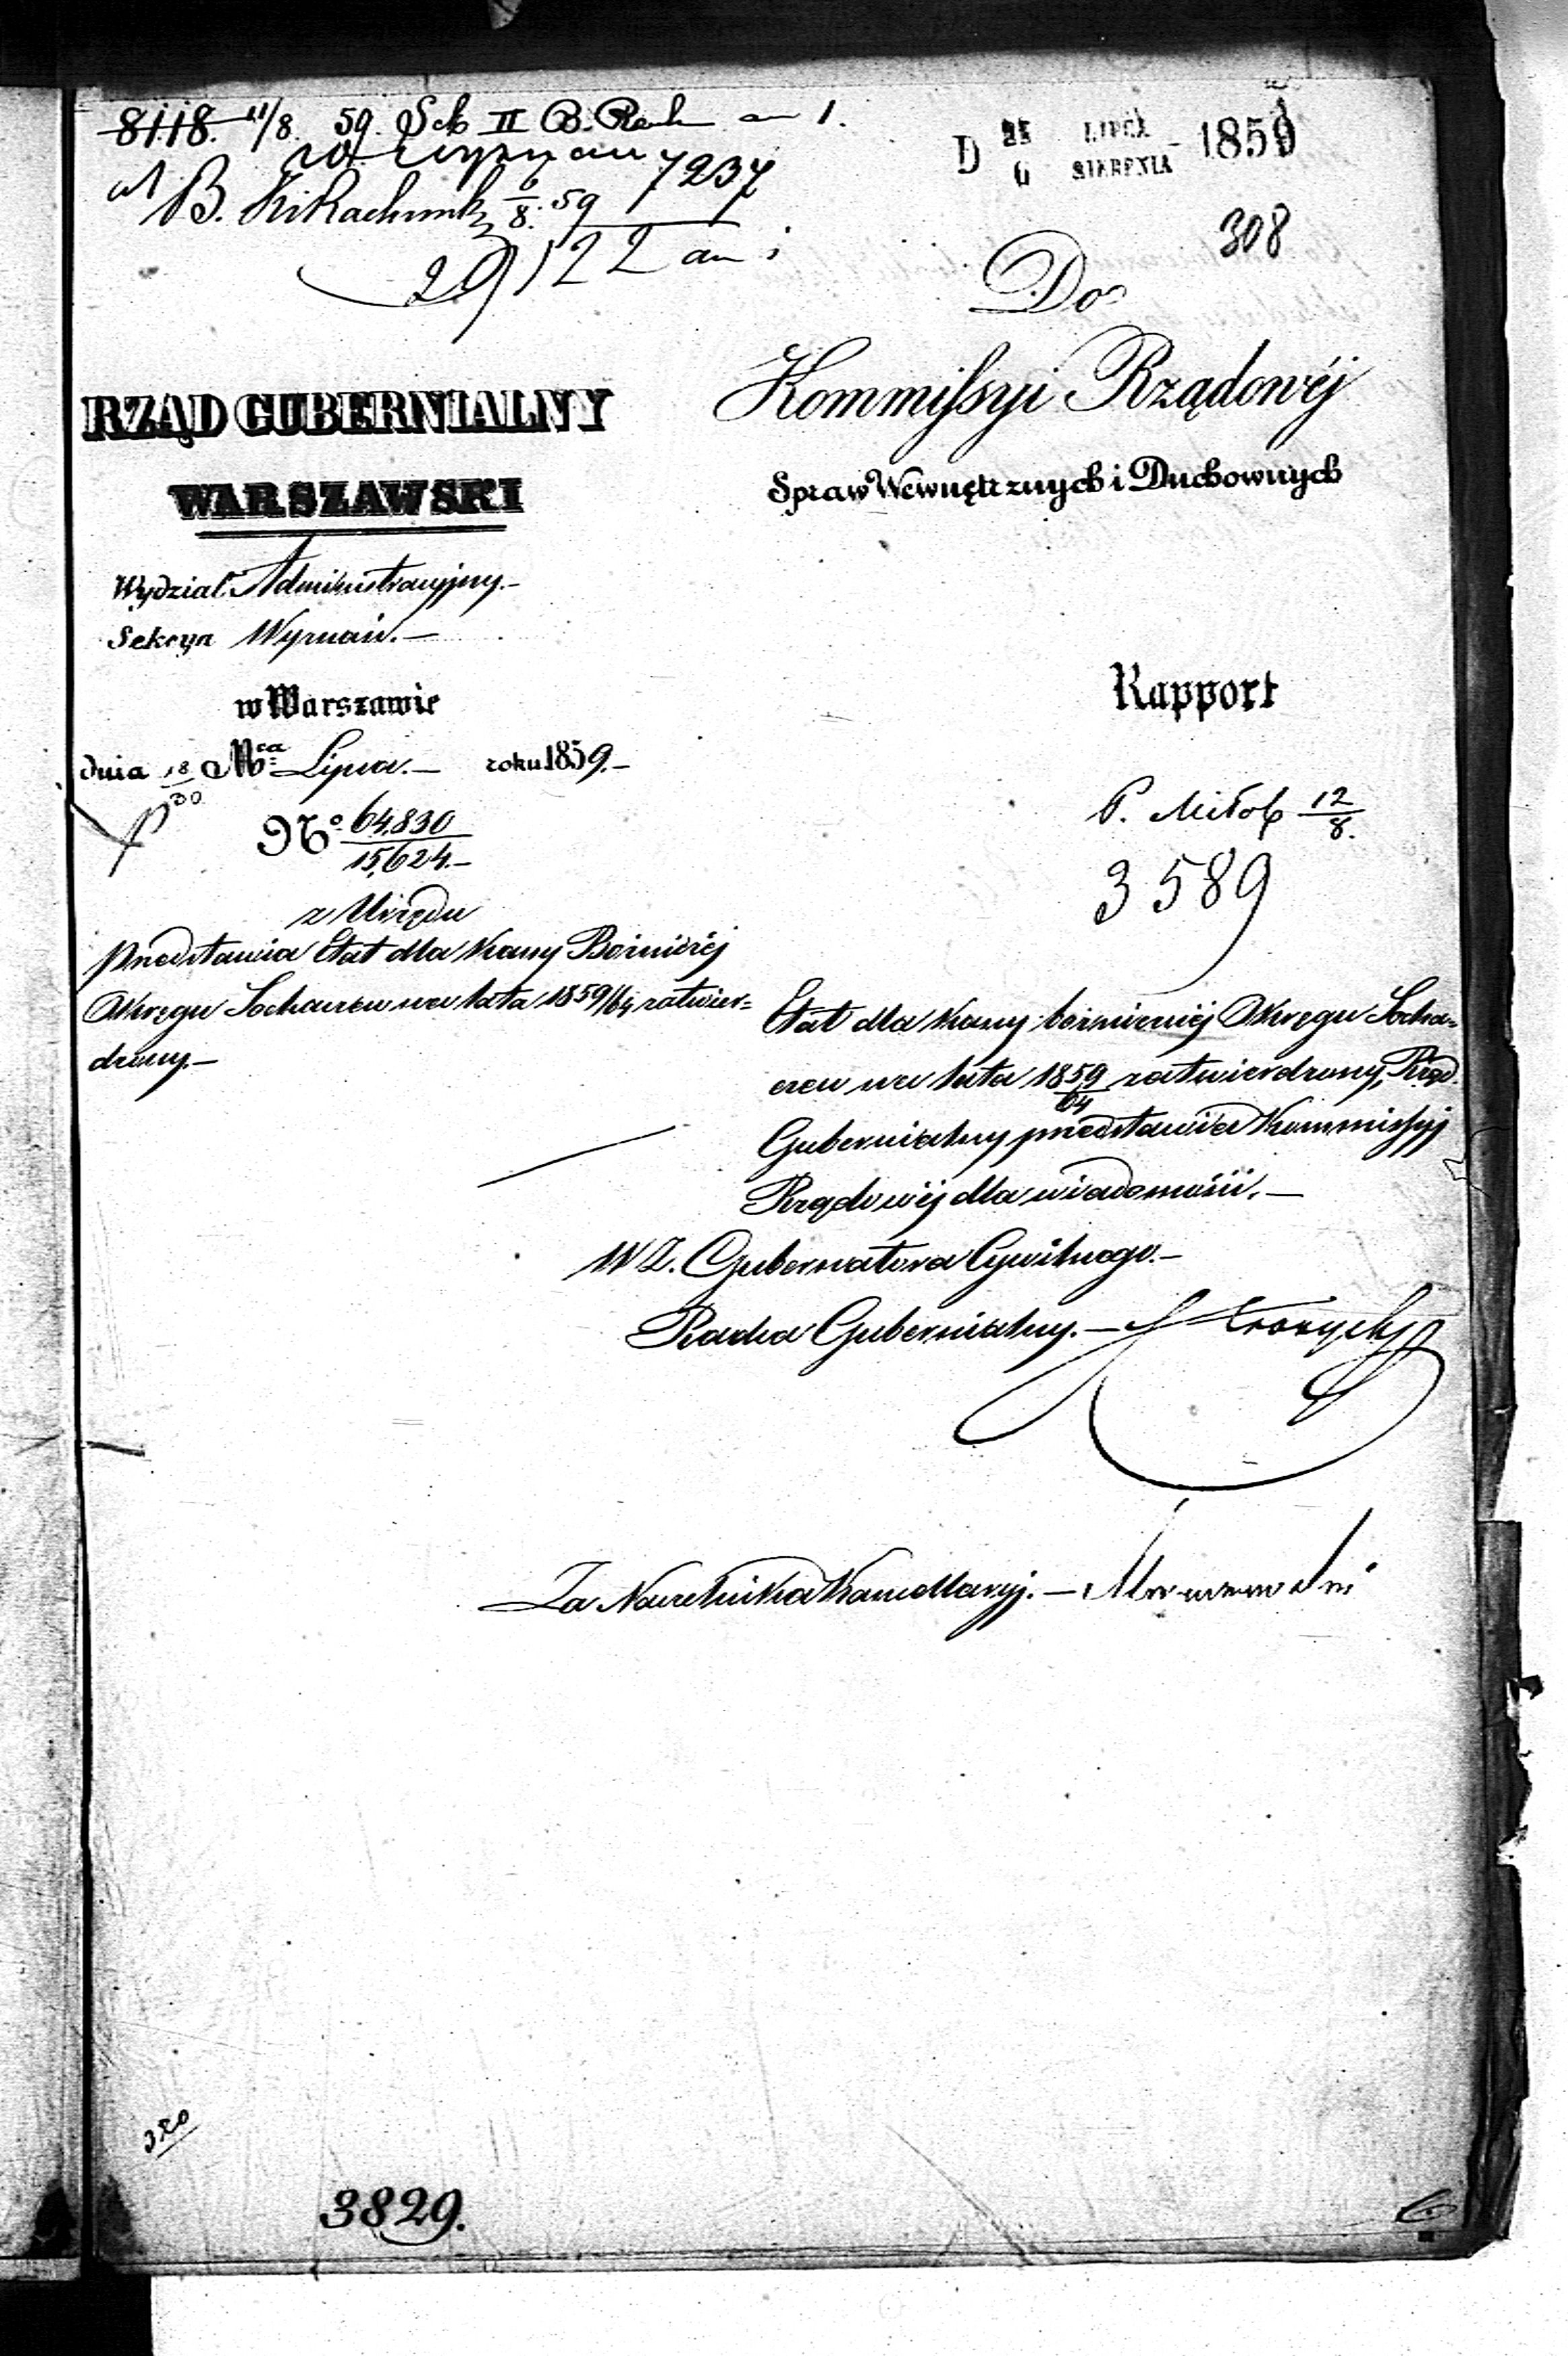 8118. 11/8 59. Sek II B. Rach an 1.
7237
B. 6/8. 59
29122 an 1
D 25 LIPCA 1859
6 SIERPNIA
308
Do
Kommissyi Rządowéj
Spraw Wewnętrznych i Duchownych
RZĄD GUBERNIALNY
WARSZAWSKI
Wydział Administracyjny.—
Sekcya Wyznań.—
w Warszawie
dnia 18/30 Mca Lipca.— roku 1859.—
No. 64,830/15,624.—
z Urzędu
przedstawia Etat dla Kassy Bóżniczéj
Okręgu Sochaczew na lata 1859/64 zatwier=
dzony.—
Rapport
P. Miłob 12/8.
3589
Etat dla Kassy bóżnicznéj Okręgu Socha=
czew na lata 1859/64 zatwierdzony, Rząd
Gubernialny przedstawia Kommissyj
Rządowéj dla wiadomości.—
W Z. Gubernatora Cywilnego.—
Radca Gubernialny.—
Za Naczelnika Kancellaryj.—
320
3829.